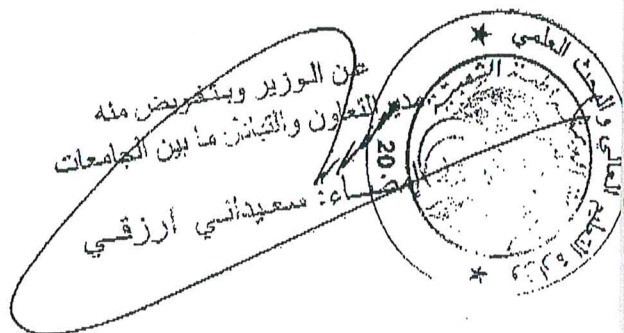 عن الوزير وبتفويض منه
مدير التعاون والتبادل ما بين الجامعات
إمضاء: سعيداني أرزقي
وزارة التعليم العالي والبحث العلمي
20